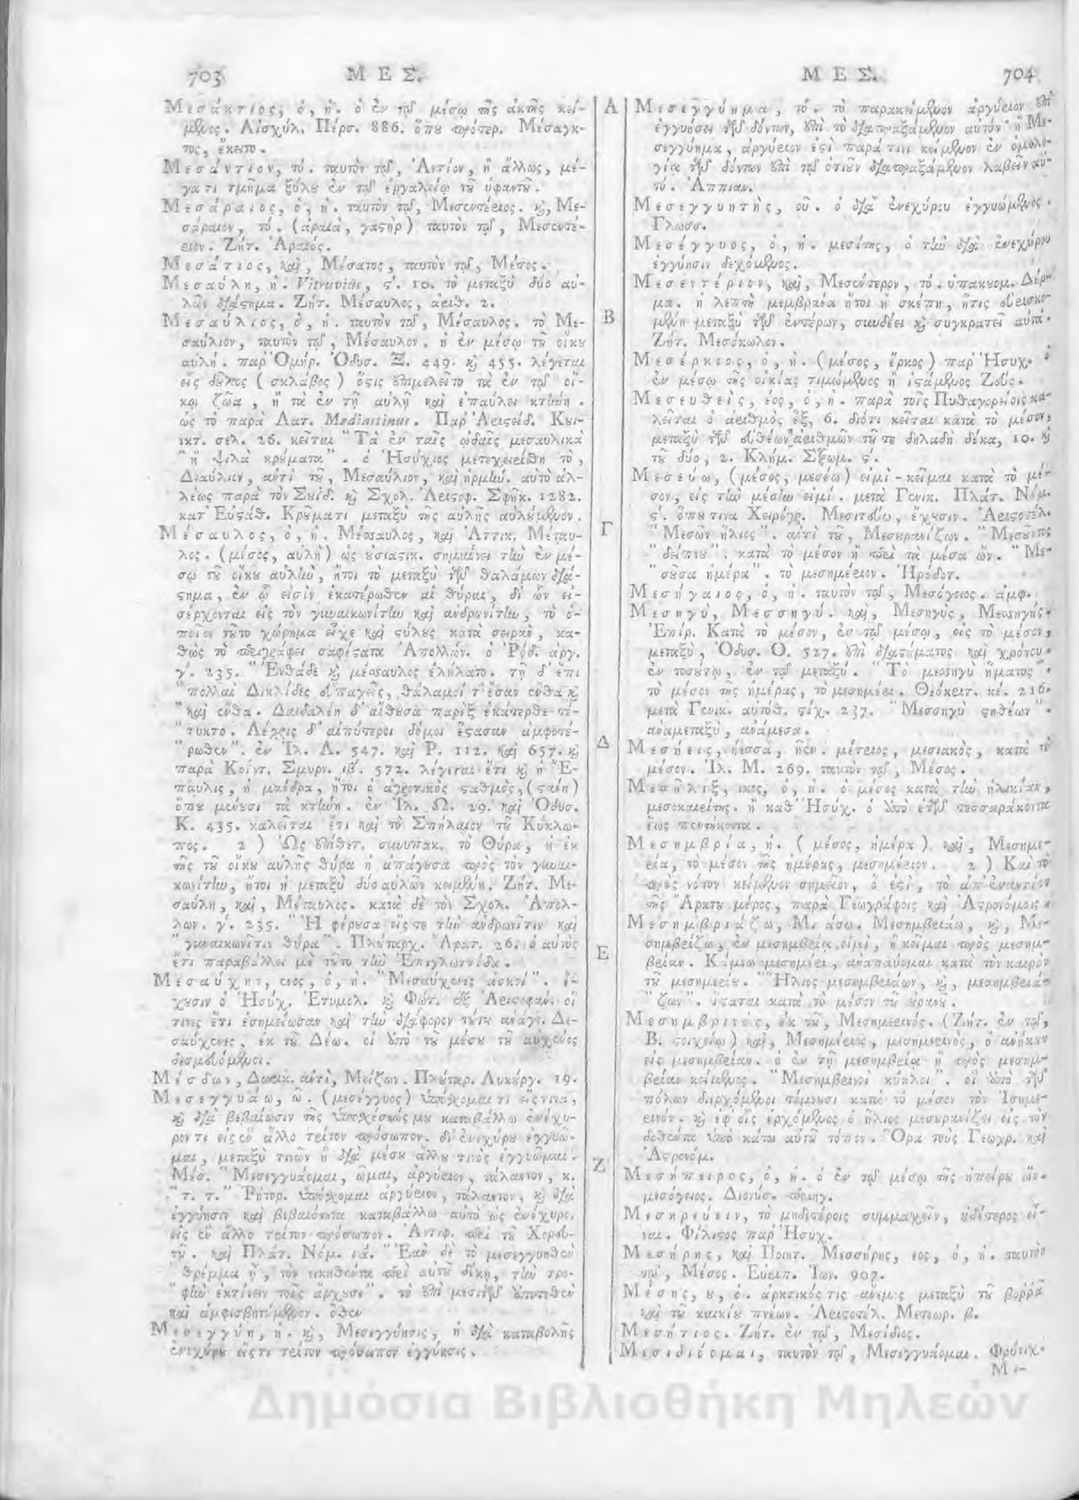 703 ΜΕΣ.
Μεσάκτιος, ὁ, ἡ. ὁ ἐν τῷ μέσῳ τῆς ἀκτῆς κεί-
μενος. Αἰσχύλ. Πέρσ. 886. ὅπου πρότερ. Μεσαγκ-
τος, ἔκειτο.
Μεσάντιον, τό. ταυτὸν τῷ, Ἀντίον, ἢ ἄλλως, μέ-
γα τι τμῆμα ξύλου ἐν τῷ ἐργαλείῳ τοῦ ὑφαντοῦ.
Μεσάραιος, ὁ, ἡ. ταυτὸν τῷ, Μεσεντέριος. καὶ, Με-
σάραιον, τό. (ἀραιὰ, γαστὴρ) ταυτὸν τῷ, Μεσεντέ-
ριον. Ζήτ. Ἀραιός.
Μεσάτιος, καὶ, Μέσατος, ταυτὸν τῷ, Μέσος.
Μεσαύλη, ἡ. Vitruvius, ς. 10. τὸ μεταξὺ δύο αὐ-
λῶν διάστημα. Ζήτ. Μέσαυλος, ἀριθ. 2.
Μεσαύλιος, ὁ, ἡ. ταυτὸν τῷ, Μέσαυλος. τὸ Με-
σαύλιον, ταυτὸν τῷ, Μέσαυλον. ἡ ἐν μέσῳ τοῦ οἴκου
αὐλή. παρ' Ὁμήρ. Ὀδυσ. Ξ. 449. καὶ 455. λέγεται
εἷς δοῦλος (σκλάβος) ὅστις ἐπιμελεῖτο τὰ ἐν τῷ οἴ-
κῳ ζῶα, ἢ τὰ ἐν τῇ αὐλῇ καὶ ἐπαύλει κτήνη.
ὡς τὸ παρὰ Λατ. Mediastinus. Παρ' Ἀριστείδ. Κυϊ-
ντ. σελ. 26. κεῖται "Τὰ ἐν ταῖς ᾠδαῖς μεσαυλικὰ
"ἢ ψιλὰ κρούματα". ὁ Ἡσύχιος μετεχειρίσθη τὸ,
Διαύλιον, ἀντὶ τοῦ, Μεσαύλιον, καὶ ἡρμήν. αὐτὸ ἀλ-
λέως παρὰ τὸν Σουΐδ. καὶ Σχολ. Ἀριστοφ. Σφηκ. 1282.
κατ' Εὐστάθ. Κρούματι μεταξὺ τῆς αὐλῆς αὐλούμενον.
Μέσαυλος, ὁ, ἡ. Μέσσαυλος, καὶ Ἀττικ. Μέταυ-
λος. (μέσος, αὐλὴ) ὡς οὐσιαστικ. σημαίνει τὴν ἐν μέ-
σῳ τοῦ οἴκου αὐλὴν, ἤτοι τὸ μεταξὺ τῶν θαλάμων διά-
στημα, ἐν ᾧ εἰσὶν ἑκατέρωθεν αἱ θύραι, δι' ὧν εἰ-
σέρχονται εἰς τὸν γυναικωνίτην καὶ ἀνδρωνίτην, τὸ ὁ-
ποῖον τοῦτο χώρημα εἶχε καὶ στύλους κατὰ σειρὰν, κα-
θὼς τὸ περιγράφει σαφέστατα Ἀπολλών. ὁ Ῥόδ. ἀργ.
γ. 235. "Ἐνθάδε καὶ μέσσαυλος ἐλήλατο. τῇ δ' ἐπὶ
"πολλαὶ Δικλίδες εὐπαγεῖς, θάλαμοί τ' ἔσαν ἔνθα καὶ
"καὶ ἔνθα. Δαιδαλέη δ' αἴθουσα παρὲξ ἑκάτερθε τέ-
"τυκτο. Λέχρις δ' αἰπύτεροι δόμοι ἕστασαν ἀμφοτέ-
"ρωθεν". ἐν Ἰλ. Λ. 547. καὶ Ρ. 112. καὶ 657. καὶ
παρὰ Κοΐντ. Σμυρν. ιβ. 572. λέγεται ἔτι καὶ ἡ Ἔ-
παυλις, ἡ μάνδρα, ἤτοι ὁ ἀγροτικὸς σταθμὸς, (στάνη)
ὅπου μένουσι τὰ κτήνη. ἐν Ἰλ. Ω. 29. καὶ Ὀδυσ.
Κ. 435. καλεῖται ἔτι καὶ τὸ Σπήλαιον τοῦ Κύκλω-
πος. 2) Ὡς ἐπίθετ. συνυπακ. τὸ Θύρα, ἡ ἐκ
τῆς τοῦ οἴκου αὐλῆς θύρα ἡ ἀπάγουσα πρὸς τὸν γυναι-
κωνίτην, ἤτοι ἡ μεταξὺ δύο αὐλῶν κειμένη. Ζήτ. Με-
σαύλη, καὶ, Μέταυλος. κατὰ δὲ τὸν Σχολ. Ἀπολ-
λων. γ. 235. "Ἡ φέρουσα εἴς τε τὴν ἀνδρωνῖτιν καὶ
"γυναικωνῖτιν θύρα". Πλούταρχ. Ἀρατ. 26. ὁ αὐτὸς
ἔτι παραβάλλει μὲ τοῦτο τὴν Ἐπιγλωττίδα.
Μεσαύχην, ενος, ὁ, ἡ. "Μεσαύχενες ἀσκοί". ἔ-
χουσιν ὁ Ἡσύχ. Ἐτυμολ. καὶ Φώτ. ἐξ Ἀριστοφάν. οἵ
τινες ἔτι ἐσημείωσαν καὶ τὴν διάφορον τούτου ἀνάγν. Δε-
σαύχενες, ἐκ τοῦ Δέω. οἱ ὑπὸ τοῦ μέσου τοῦ αὐχένος
δεσμευόμενοι.
Μέσδων, Δωρικ. ἀντὶ, Μείζων. Πλούταρ. Λυκούργ. 19.
Μεσεγγυάω, ῶ. (μεσέγγυος) ὑπόσχομαί τι εἴς τινα,
καὶ διὰ βεβαίωσιν τῆς ὑποσχέσεώς μου καταβάλλω ἐνέχυ-
ρόν τι εἰς ἓν ἄλλο τρίτον πρόσωπον. δι' ἐνεχύρου ἐγγυῶ-
μαι, μεταξὺ τινῶν ἢ διὰ μέσου ἄλλου τινὸς ἐγγυῶμαι.
Μέσ. "Μεσεγγυάομαι, ῶμαι, ἀργύριον, τάλαντον, κ.
"τ. τ." Ῥήτορ. ὑπόσχομαι ἀργύριον, τάλαντον, καὶ διὰ
ἐγγύησιν καὶ βεβαιότητα καταβάλλω αὐτὸ ὡς ἐνέχυρ.
εἰς ἓν ἄλλο τρίτον πρόσωπον. Ἀντιφ. περὶ τοῦ Χορευ-
τοῦ. καὶ Πλάτ. Νόμ. ιά. "Ἐὰν δὲ τὸ μεσεγγυηθὲν
"θρέμμα ᾖ, τὸν νικηθέντα περὶ αὐτοῦ δίκῃ, τὴν τρο-
"φὴν ἐκτίνειν τοῖς ἄρχουσι". τὸ ἐπὶ μεσιτῶν ἀποτεθὲν
καὶ ἀμφισβητούμενον. ὅθεν
Μεσεγγύη, ἡ. καὶ, Μεσεγγύησις, ἡ διὰ καταβολῆς
ἐνεχύρου εἴς τι τρίτον πρόσωπον ἐγγύησις.
Α
Β
Γ
Δ
Ε
Ζ
ΜΕΣ. 704
Μεσεγγύημα, τό. τὸ παρακείμενον ἀργύριον ἐπὶ
ἐγγυήσει τῶν δόντων, ἐπὶ τὸ διαπραξάμενον αὐτὸν ἢ Με-
σεγγύημα, ἀργύριον ἐστὶ παρά τινι κείμενον ἐν ὁμολο-
γίᾳ τῶν δόντων ἐπὶ τῷ ὁτιοῦν διαπραξάμενον λαβεῖν αὐ-
τό. Ἀππιαν.
Μεσεγγυητὴς, οῦ. ὁ δι' ἐνεχύρου ἐγγυώμενος.
Γλωσσ.
Μεσέγγυος, ὁ, ἡ. μεσίτης, ὁ τὴν δι' ἐνεχύρου
ἐγγύησιν δεχόμενος.
Μεσεντέριον, καὶ, Μεσέντερον, τό. ὑπακουομ. Δέρ-
μα. ἡ λεπτὴ μεμβραία ἤτοι ἡ σκέπη, ἥτις εὑρισκο-
μένη μεταξὺ τῶν ἐντέρων, συνδέει καὶ συγκρατεῖ αὐτά.
Ζήτ. Μεσόκωλον.
Μεσέρκειος, ὁ, ἡ. (μέσος, ἕρκος) παρ' Ἡσυχ. ὁ
ἐν μέσῳ τῆς οἰκίας τιμώμενος ἢ ἱστάμενος Ζεύς.
Μεσευθεὶς, έος, ὁ, ἡ. παρὰ τοῖς Πυθαγορείοις κα-
λεῖται ὁ ἀριθμὸς ἕξ, 6. διότι κεῖται κατὰ τὸ μέσον,
μεταξὺ τῶν εὐθέων ἀριθμῶν τοῦ τε δηλαδὴ δέκα, 10. καὶ
τοῦ δύο, 2. Κλήμ. Στρωμ. ς.
Μεσεύω, (μέσος, μεσέω) εἰμὶ - κεῖμαι κατὰ τὸ μέ-
σον, εἰς τὴν μέσην εἰμί. μετὰ Γενικ. Πλάτ. Νόμ.
ς. ὅπου τινα Χειρόγρ. Μεσιτεύω, ἔχουσιν. Ἀριστοτέλ.
"Μεσῶν ἥλιος". ἀντὶ τοῦ, Μεσουρανίζων. "Μεσοῦντος
"δείπνου". κατὰ τὸ μέσον ἢ περὶ τὰ μέσα ὤν. "Με-
"σοῦσα ἡμέρα". τὸ μεσημέριον. Ἡρόδοτ.
Μεσήγαιος, ὁ, ἡ. ταυτὸν τῷ, Μεσόγειος. ἀμφ.
Μεσηγὺ, Μεσσηγύ. καὶ, Μεσηγὺς, Μεσσηγὺς.
Ἐπίρ. Κατὰ τὸ μέσον, ἐν τῷ μέσῳ, εἰς τὸ μέσον,
μεταξὺ, Ὀδυσ. Ο. 527. ἐπὶ διαστήματος καὶ χρόνου.
ἐν τοσούτῳ, ἐν τῷ μεταξύ. "Τὸ μεσσηγὺ ἤματος"
τὸ μέσον τῆς ἡμέρας, τὸ μεσημέρι. Θεόκριτ. κέ. 216.
μετὰ Γενικ. αὐτόθ. στίχ. 237. "Μεσσηγὺ στηθέων".
ἀναμεταξὺ, ἀνάμεσα.
Μεσήεις, ήεσσα, ῆεν. μέτριος, μεσιακὸς, κατὰ τὸ
μέσον. Ἰλ. Μ. 269. ταυτὸν τῷ, Μέσος.
Μεσῆλιξ, ικος, ὁ, ἡ. ὁ μέσος κατὰ τὴν ἡλικίαν,
μεσοκαιρίτης. ἢ καθ' Ἡσύχ. ὁ ἀπὸ ἐτῶν τεσσαράκοντα
ἕως πεντήκοντα.
Μεσημβρία, ἡ. (μέσος, ἡμέρα) καὶ, Μεσημε-
ρία, τὸ μέσον τῆς ἡμέρας, μεσημέριον. 2) Καὶ τὸ
πρὸς νότον κείμενον σημεῖον, ὅ ἐστι, τὸ ἀπέναντίον
τῆς Ἄρκτου μέρος, παρὰ Γεωγράφοις καὶ Ἀστρονόμοις.
Μεσημβριάζω, Μ. άσω. Μεσημβριάω, καὶ, Με-
σημβρίζω, ἐν μεσημβρίᾳ εἰμὶ, ἢ κοῖμαι πρὸς μεσημ-
βρίαν. Κάμνω μεσημέρι, ἀναπαύομαι κατὰ τὸν καιρὸν
τοῦ μεσημερίου. "Ἥλιος μεσημβριάων, καὶ, μεσημβριά-
"ζων". ἵσταται κατὰ τὸ μέσον τοῦ οὐρανοῦ.
Μεσημβρινὸς, ἐκ τοῦ, Μεσημερινός. (Ζήτ. ἐν τῷ,
Β. στοιχείῳ) καὶ, Μεσημέριος, μεσημερινὸς, ὁ ἀνήκων
εἰς μεσημβρίαν. ὁ ἐν τῇ μεσημβρίᾳ ἢ πρὸς μεσημ-
βρίαν κείμενος. "Μεσημβρινοὶ κύκλοι". οἱ ἀπὸ τῶν
πόλων διερχόμενοι τέμνουσι κατὰ τὸ μέσον τὸν Ἰσημε-
ρινόν. καὶ ἐφ' οἷς ἐρχόμενος ὁ ἥλιος μεσουρανίζει εἰς τὸν
δοθέντα ὑπὸ κάτω αὐτοῦ τόπον. Ὅρα τοὺς Γεωγρ. καὶ
Ἀστρονόμ.
Μεσήπειρος, ὁ, ἡ. ὁ ἐν τῷ μέσῳ τῆς ἠπείρου ὤν.
μεσόγειος. Διονύσ. περιηγ.
Μεσηρεύειν, τὸ μηδετέροις συμμαχεῖν, οὐδέτερος εἶ-
ναι. Φίλιστος παρ' Ἡσυχ.
Μεσήρης, καὶ Ποιητ. Μεσσήρης, εος, ὁ, ἡ. ταυτὸν
τῷ, Μέσος. Εὐριπ. Ἴων. 907.
Μέσης, ου, ὁ. ἀρκτικός τις ἄνεμος μεταξὺ τοῦ βορρᾶ
καὶ τοῦ καικίου πνέων. Ἀριστοτέλ. Μετεωρ. β.
Μεσήτιος. Ζήτ. ἐν τῷ, Μεσίδιος.
Μεσιδιόομαι, ταυτὸν τῷ, Μεσεγγυάομαι. Φρύνιχ.
Με-
Δημόσια Βιβλιοθήκη Μηλεών